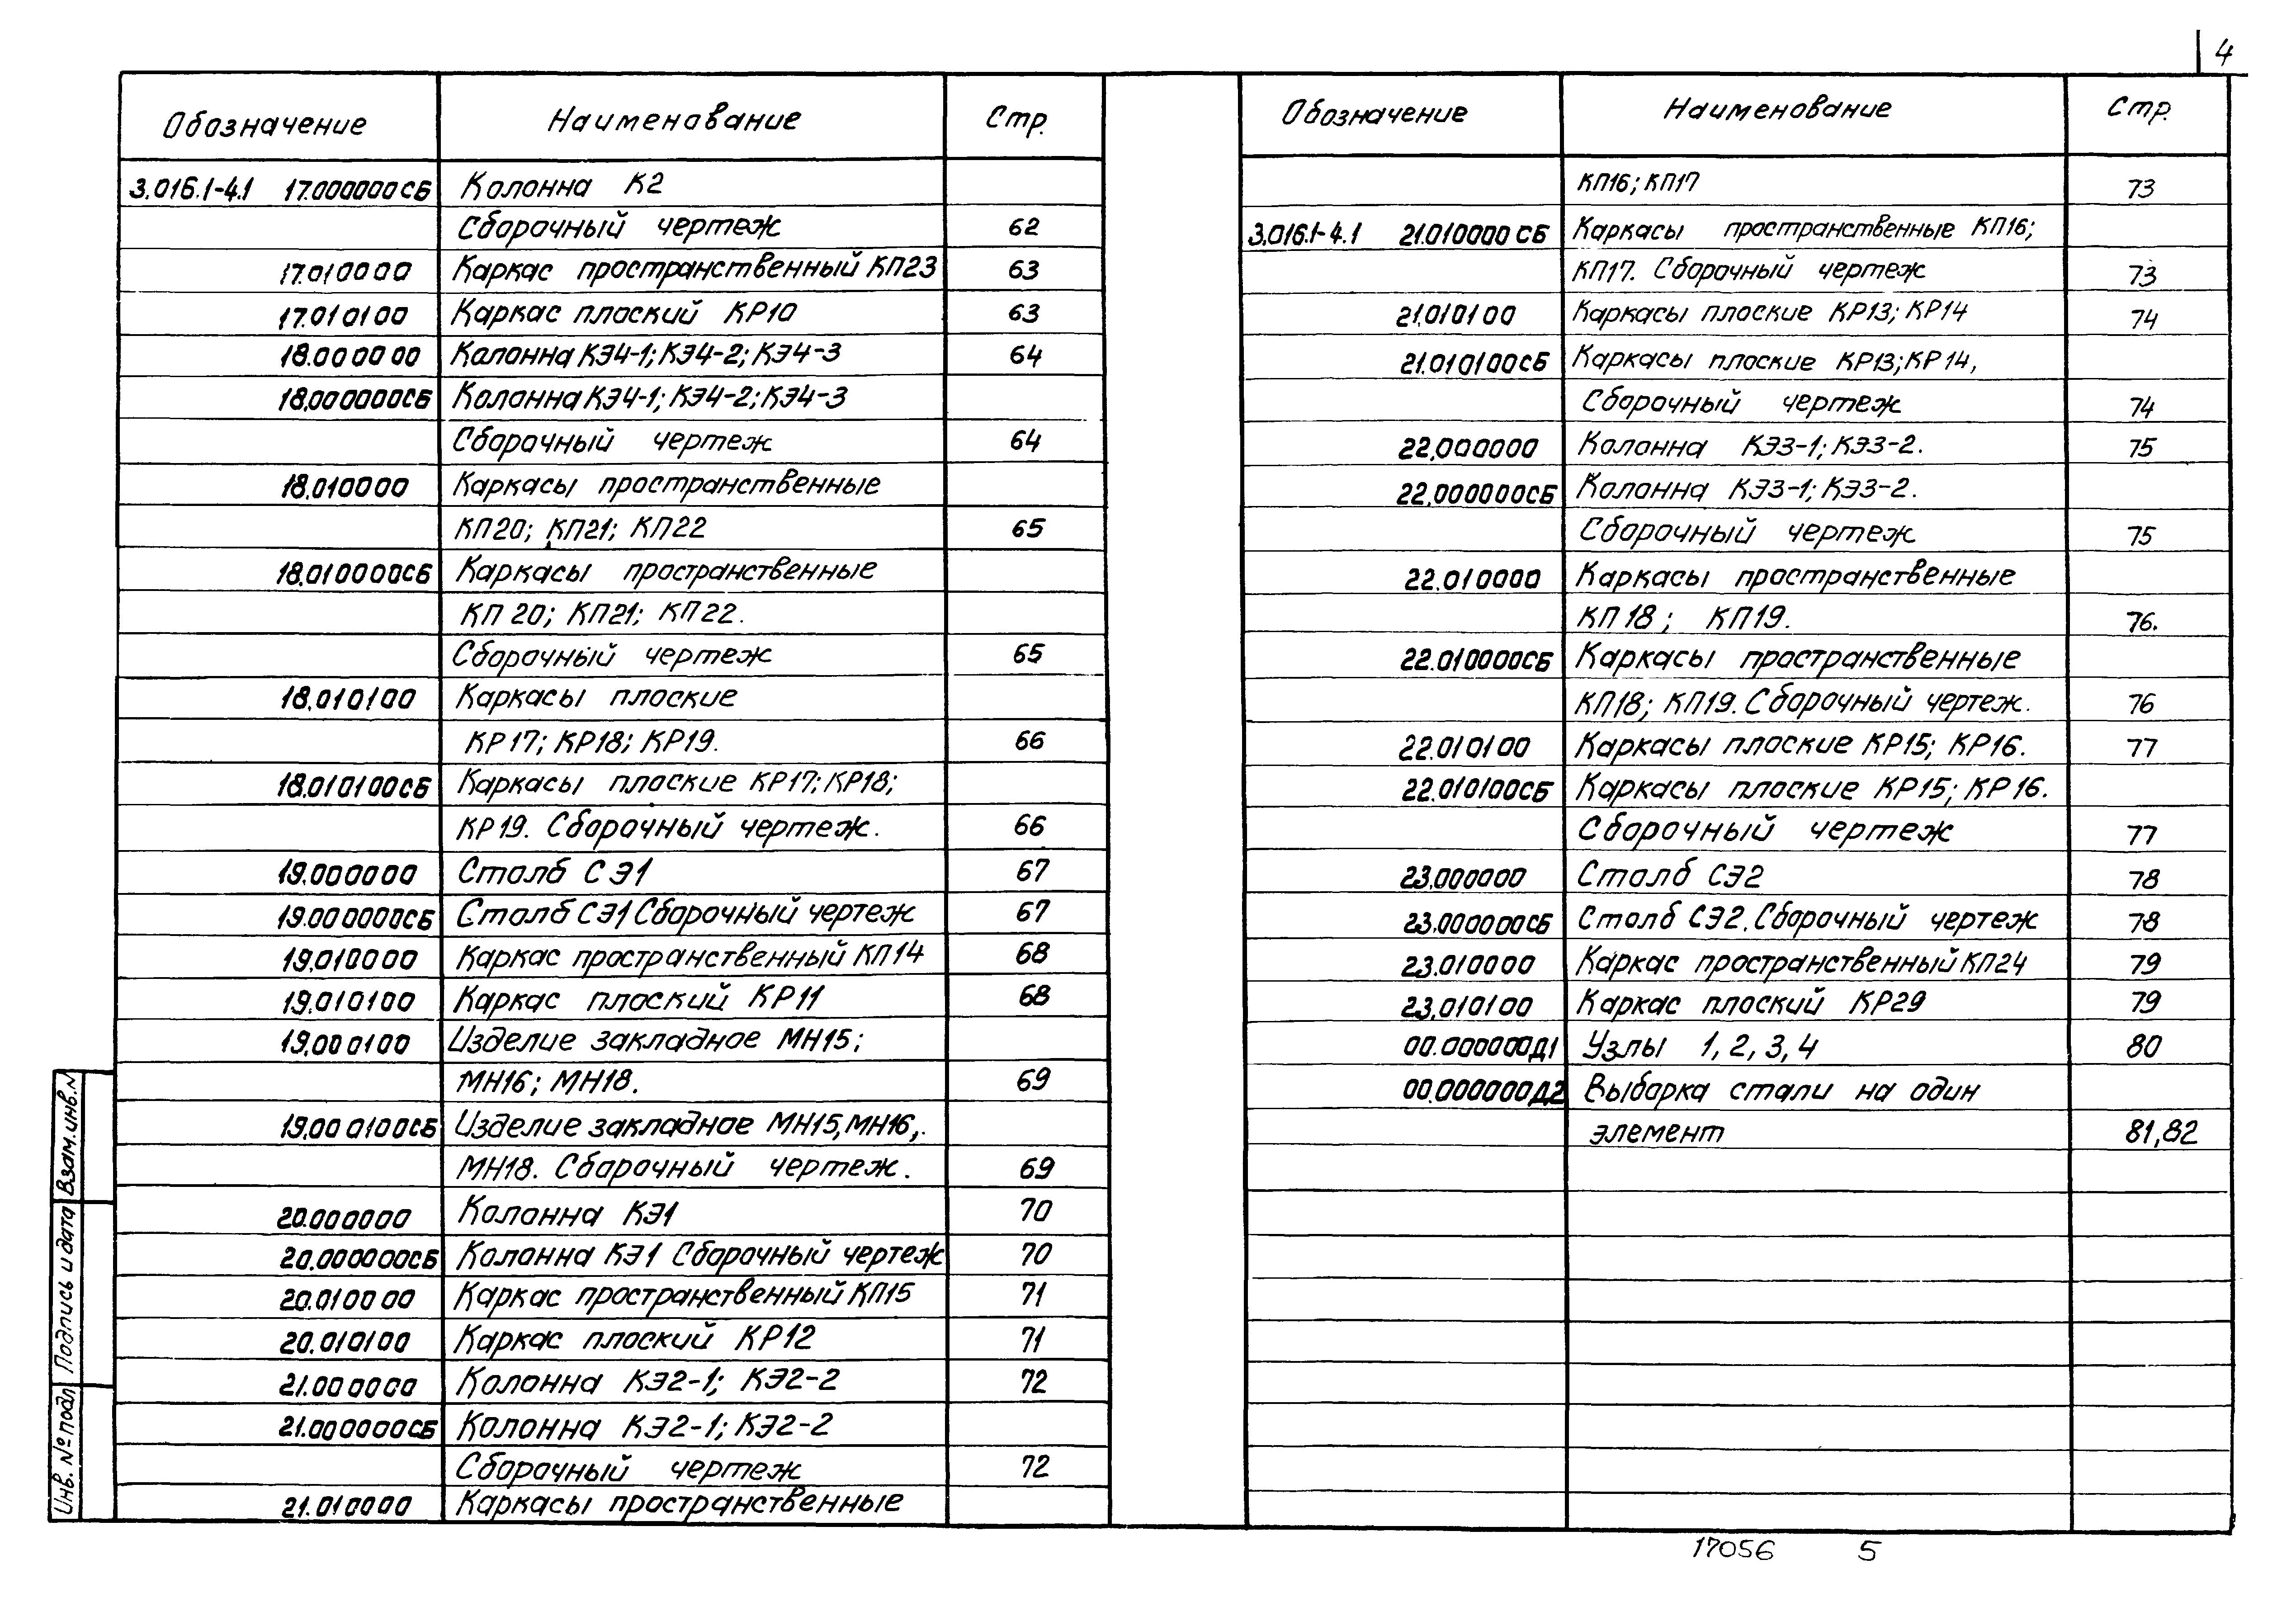 4
Обозначение Наименование Стр.
3.016.1-4.1 17.000000СБ Колонна К2
Сборочный чертеж 62
17.010000 Каркас пространственный КП23 63
17.010100 Каркас плоский КР10 63
18.000000 Колонна КЭ4-1; КЭ4-2; КЭ4-3 64
18.000000СБ Колонна КЭ4-1; КЭ4-2; КЭ4-3
Сборочный чертеж 64
18.010000 Каркасы пространственные
КП20; КП21; КП22 65
18.010000СБ Каркасы пространственные
КП20; КП21; КП22.
Сборочный чертеж 65
18.010100 Каркасы плоские
КР17; КР18; КР19. 66
18.010100СБ Каркасы плоские КР17; КР18;
КР19. Сборочный чертеж. 66
19.000000 Столб СЭ1 67
19.000000СБ Столб СЭ1 Сборочный чертеж 67
19.010000 Каркас пространственный КП14 68
19.010100 Каркас плоский КР11 68
19.000100 Изделие закладное МН15;
МН16; МН18. 69
19.000100СБ Изделие закладное МН15, МН16,.
МН18. Сборочный чертеж. 69
20.000000 Колонна КЭ1 70
20.000000СБ Колонна КЭ1 Сборочный чертеж 70
20.010000 Каркас пространственный КП15 71
20.010100 Каркас плоский КР12 71
21.000000 Колонна КЭ2-1; КЭ2-2 72
21.000000СБ Колонна КЭ2-1; КЭ2-2
Сборочный чертеж 72
21.010000 Каркасы пространственные
Обозначение Наименование Стр.
КП16; КП17 73
3.016.1-4.1 21.010000СБ Каркасы пространственные КП16;
КП17. Сборочный чертеж 73
21.010100 Каркасы плоские КР13; КР14 74
21.010100СБ Каркасы плоские КР13; КР14,
Сборочный чертеж 74
22.000000 Колонна КЭ3-1; КЭ3-2. 75
22.000000СБ Колонна КЭ3-1; КЭ3-2.
Сборочный чертеж 75
22.010000 Каркасы пространственные
КП18; КП19. 76.
22.010000СБ Каркасы пространственные
КП18; КП19. Сборочный чертеж. 76
22.010100 Каркасы плоские КР15; КР16. 77
22.010100СБ Каркасы плоские КР15; КР16.
Сборочный чертеж 77
23.000000 Столб СЭ2 78
23.000000СБ Столб СЭ2. Сборочный чертеж 78
23.010000 Каркас пространственный КП24 79
23.010100 Каркас плоский КР29 79
00.000000Д1 Узлы 1, 2, 3, 4 80
00.000000Д2 Выборка стали на один
элемент 81,82
Взам.инв.№
Подпись и дата
Инв. № подл.
17056 5